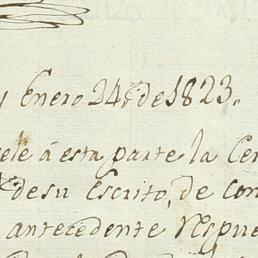 y Enero 24, de 1823.
ele á esta parte la Cer
de su Escrito, de con
antecedente respue